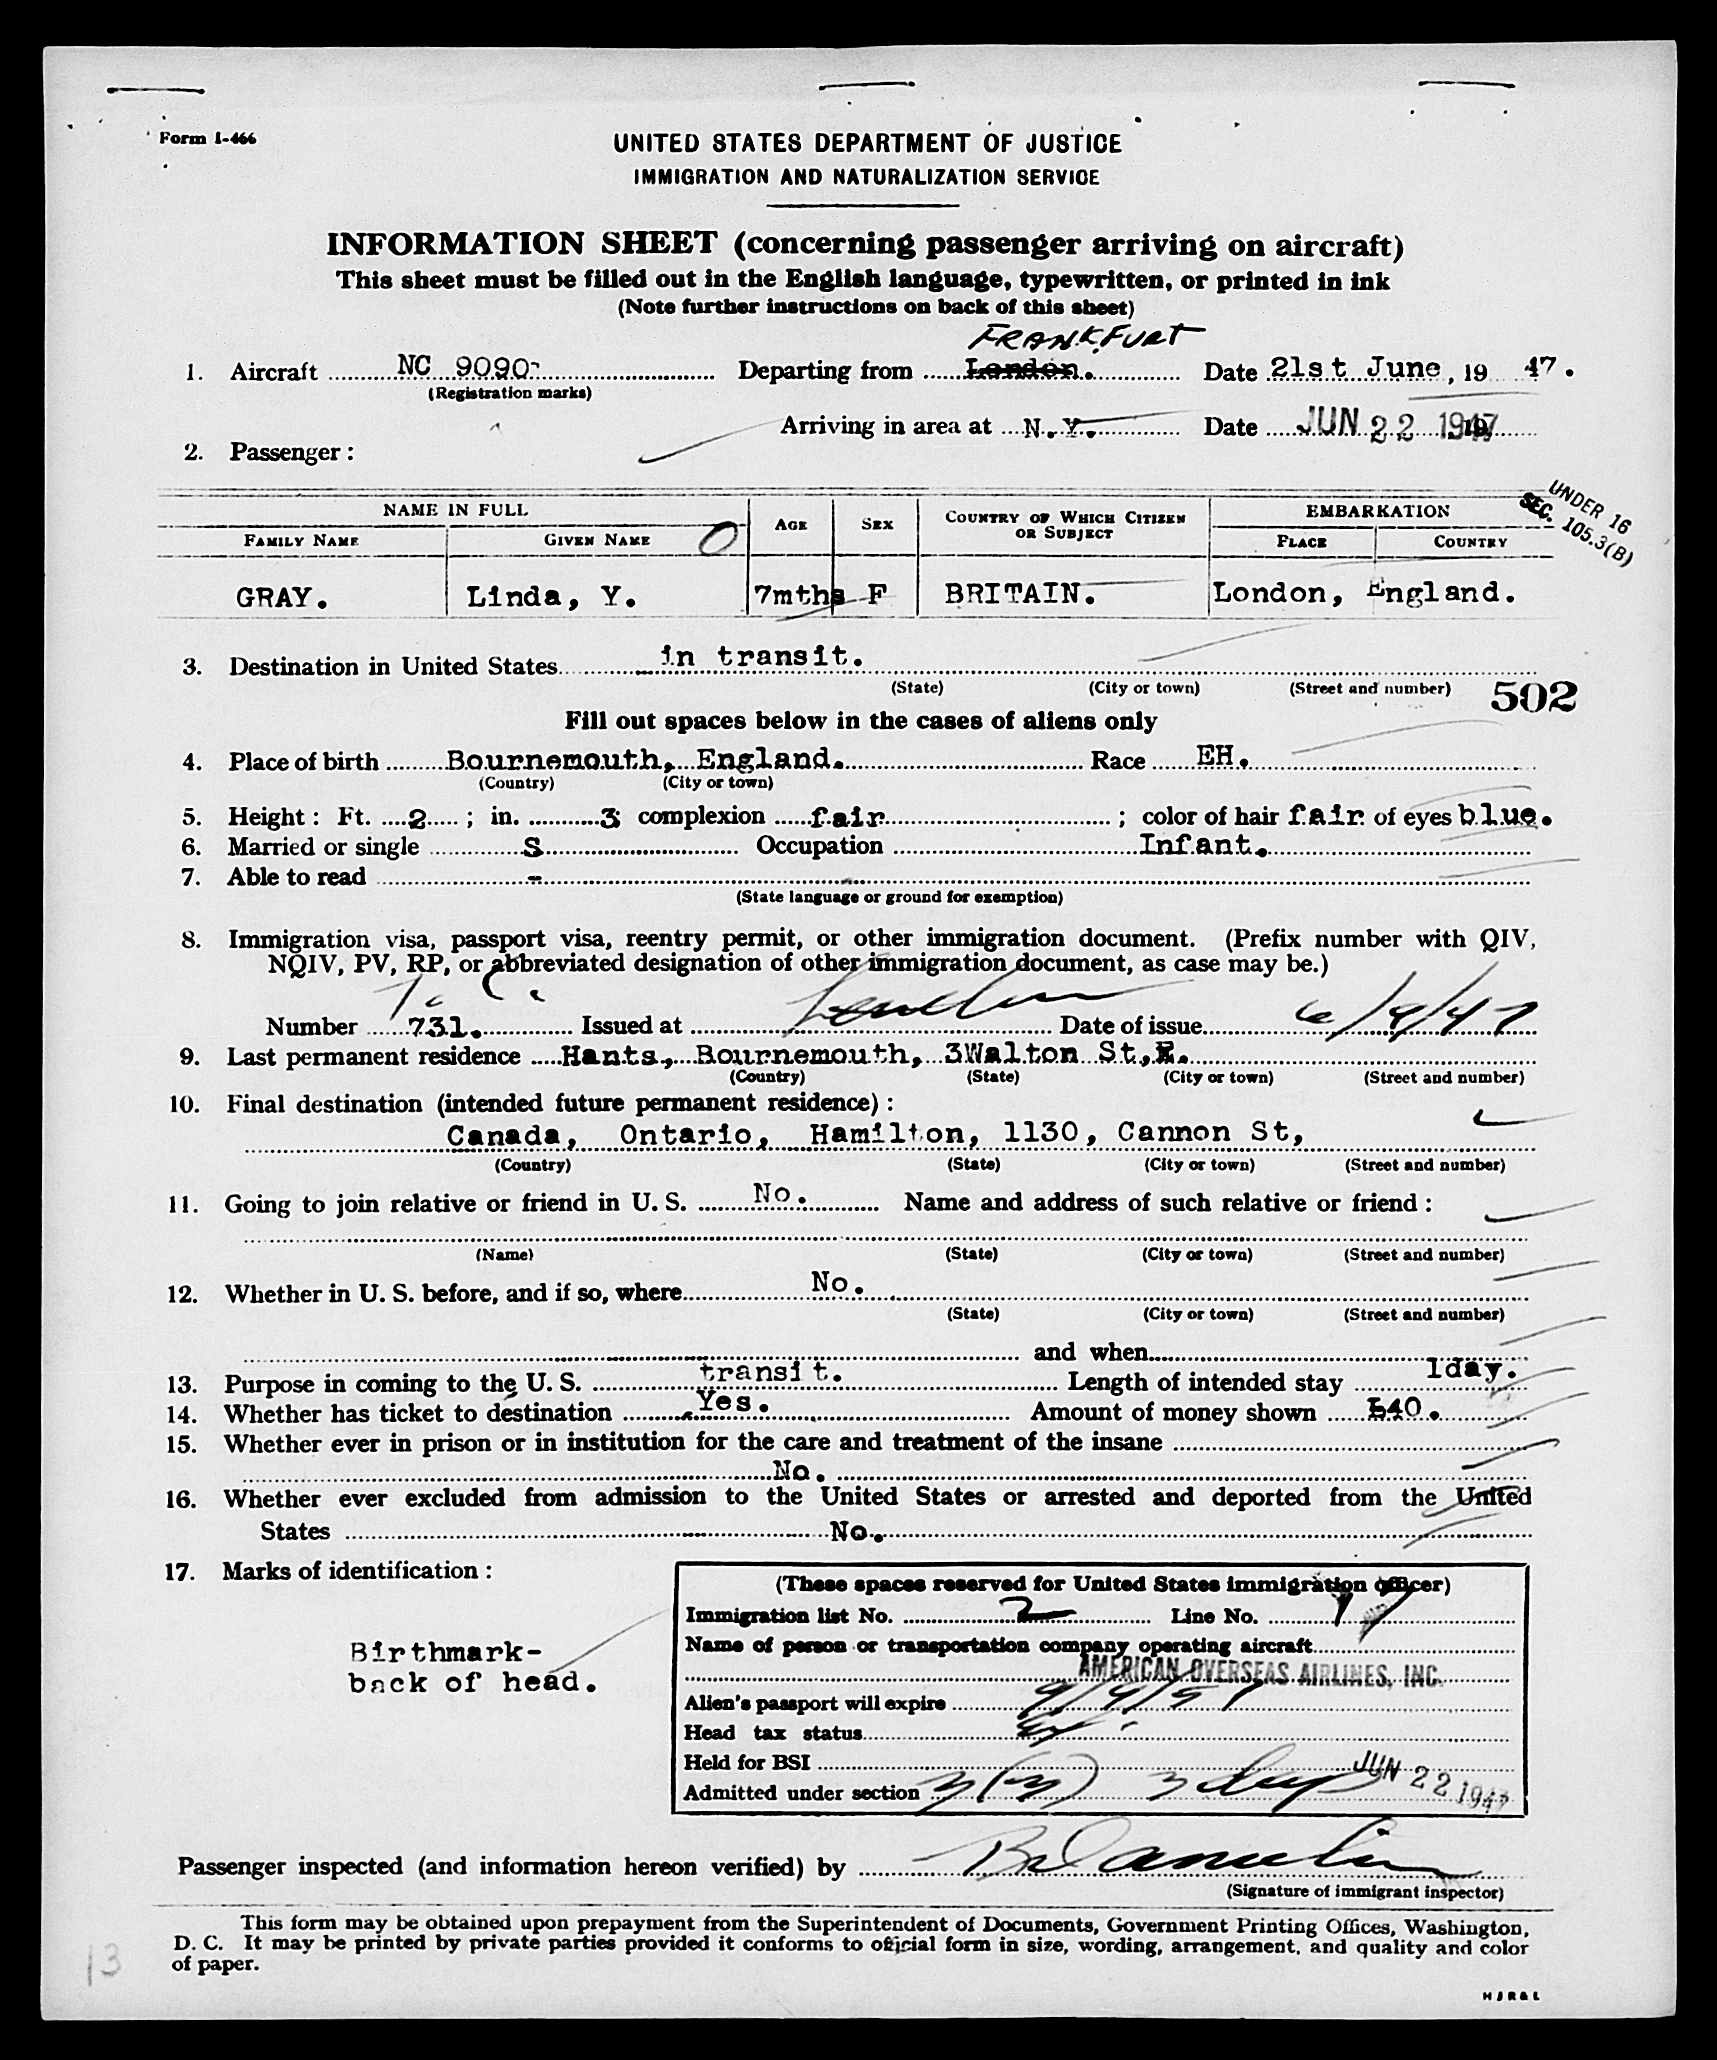 Form I-466
UNITED STATES DEPARTMENT OF JUSTICE
IMMIGRATION AND NATURALIZATION SERVICE
INFORMATION SHEET (concerning passenger arriving on aircraft)
This sheet must be filled out in the English language, typewritten, or printed in ink
(Note further instructions on back of this sheet)
FRANKFURT
1. Aircraft NC 9090- Departing from London. Date 21st June, 19 47.
(Registration marks)
Arriving in area at N.Y. Date JUN 22 1947
2. Passenger:
UNDER 16
SEC. 105.3(B)
NAME IN FULL AGE SEX COUNTRY OF WHICH CITIZEN OR SUBJECT EMBARKATION
FAMILY NAME GIVEN NAME PLACE COUNTRY
GRAY. Linda, Y. 7mths F BRITAIN. London, England.
3. Destination in United States in transit.
(State) (City or town) (Street and number)
502
Fill out spaces below in the cases of aliens only
4. Place of birth Bournemouth, England. Race EH.
(Country) (City or town)
5. Height: Ft. 2; in. 3 complexion fair; color of hair fair of eyes blue.
6. Married or single S Occupation Infant.
7. Able to read -
(State language or ground for exemption)
8. Immigration visa, passport visa, reentry permit, or other immigration document. (Prefix number with QIV,
NQIV, PV, RP, or abbreviated designation of other immigration document, as case may be.)
Number 731. Issued at London Date of issue 6/9/47
9. Last permanent residence Hants, Bournemouth, 3Walton St,E.
(Country) (State) (City or town) (Street and number)
10. Final destination (intended future permanent residence):
Canada, Ontario, Hamilton, 1130, Cannon St,
(Country) (State) (City or town) (Street and number)
11. Going to join relative or friend in U. S. No. Name and address of such relative or friend:
(Name) (State) (City or town) (Street and number)
12. Whether in U. S. before, and if so, where No.
(State) (City or town) (Street and number)
and when
13. Purpose in coming to the U. S. transit. Length of intended stay 1day.
14. Whether has ticket to destination Yes. Amount of money shown £40.
15. Whether ever in prison or in institution for the care and treatment of the insane
No.
16. Whether ever excluded from admission to the United States or arrested and deported from the United
States No.
17. Marks of identification:
Birthmark-
back of head.
(These spaces reserved for United States immigration officer)
Immigration list No. 2 Line No.
Name of person or transportation company operating aircraft
AMERICAN OVERSEAS AIRLINES, INC.
Alien's passport will expire
Head tax status
Held for BSI
Admitted under section 3(3) 3 days JUN 22 1947
Passenger inspected (and information hereon verified) by
(Signature of immigrant inspector)
This form may be obtained upon prepayment from the Superintendent of Documents, Government Printing Offices, Washington,
D. C. It may be printed by private parties provided it conforms to official form in size, wording, arrangement, and quality and color
of paper.
13
HJR&L